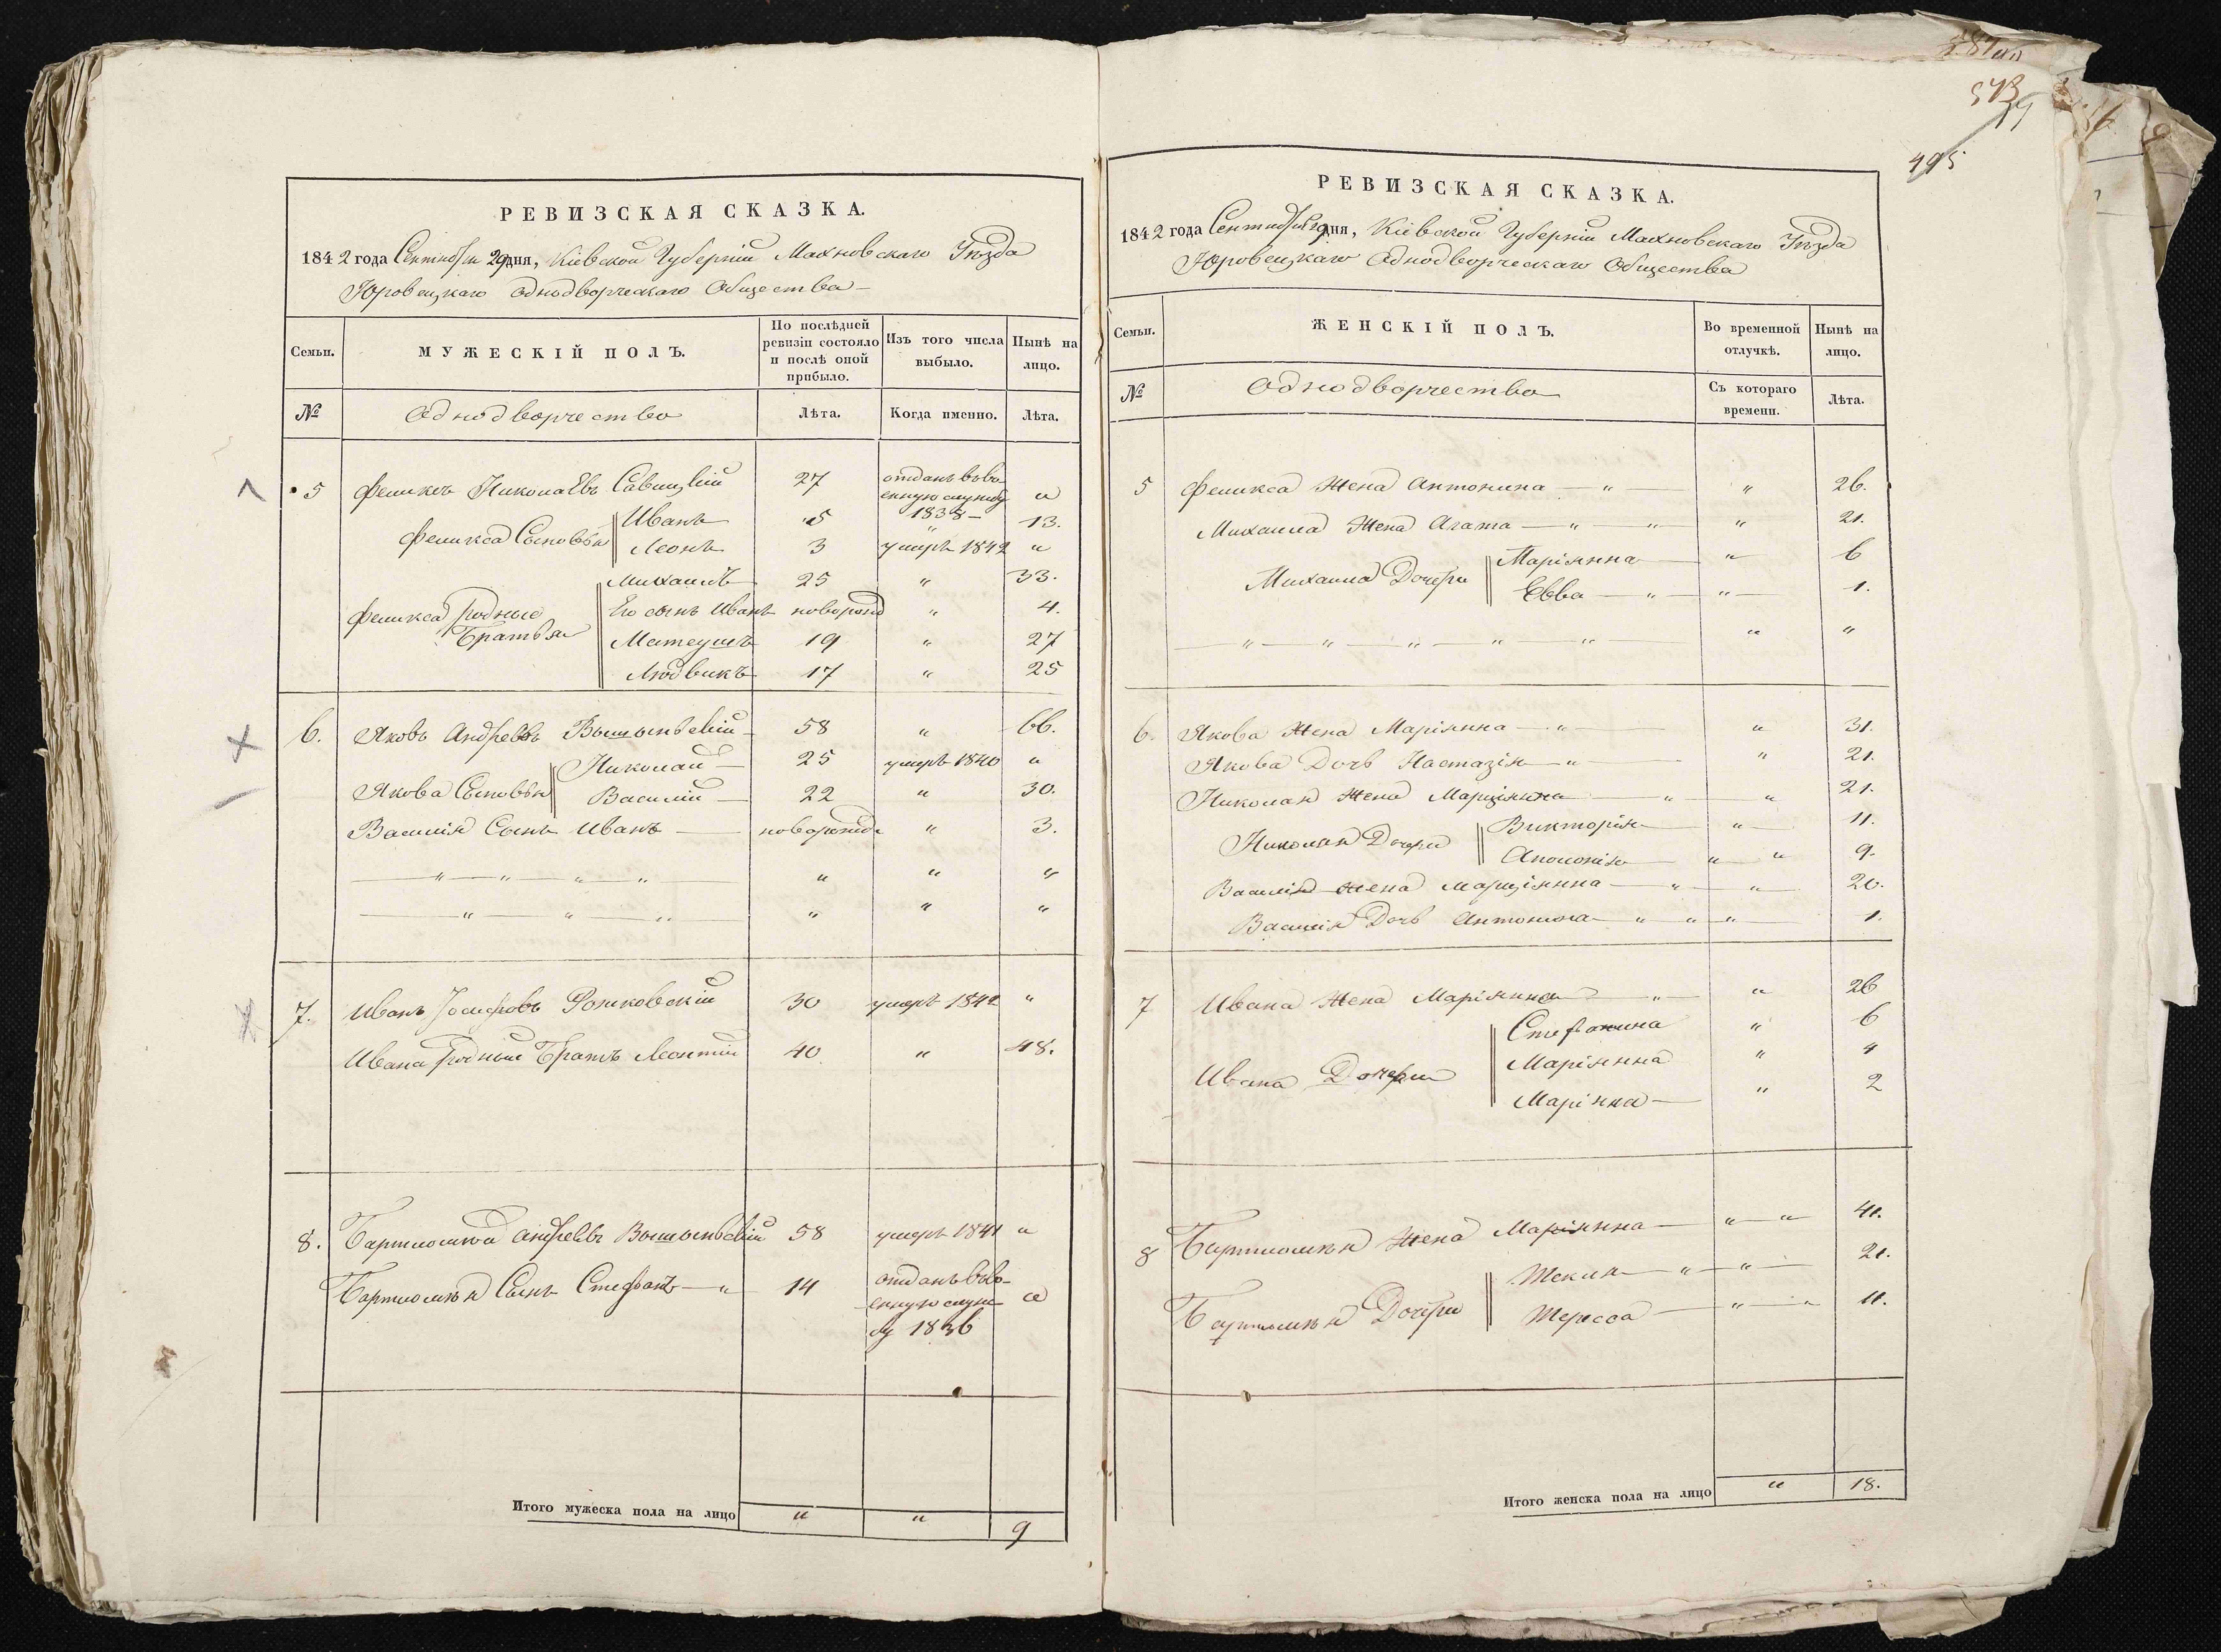 РЕВИЗСКАЯ СКАЗКА.
1842 года Сентября 29 дня, Кіевской Губерніи Махновскаго Уѣзда
Юровецкаго Однодворческаго Общества
Семьи.
МУЖЕСКІЙ ПОЛЪ.
По послѣдней ревизіи состояло и послѣ оной прибыло.
Изъ того числа выбыло.
Нынѣ на лицо.
№
Однодворчество
Лѣта.
Когда именно.
Лѣта.
5 Феликсъ Николаевъ Савицкій 27 отданъ въ военную службу 1838 "
Феликса Сыновья Иванъ 5 " 13.
Леонъ 3 умеръ 1842 "
Феликса родные Братья Михаилъ 25 " 33.
Его сынъ Иванъ новорожд " 4.
Матеушъ 19 " 27
Людвикъ 17 " 25
6. Яковъ Андреевъ Вышынскій 58 " 66.
Якова Сыновья Николай 25 умеръ 1840 "
Василій 22 " 30.
Василія Сынъ Иванъ новорожд " 3.
" " " " " " "
" " " " " "
7. Иванъ Іосифовъ Рожковскій 30 умеръ 1842 "
Ивана родный Братъ Леонтій 40 " 48.
8. Бартломей Андреевъ Вышынскій 58 умеръ 1841 "
Бартломѣя Сынъ Стефанъ " 14 отданъ въ военную службу 1836 "
Итого мужеска пола на лицо " " 9
495
РЕВИЗСКАЯ СКАЗКА.
1842 года Сентября 29 дня, Кіевской Губерніи Махновскаго Уѣзда
Юровецкаго Однодворческаго Общества
Семьи.
ЖЕНСКІЙ ПОЛЪ.
Во временной отлучкѣ.
Нынѣ на лицо.
№
Однодворчество
Съ котораго времени.
Лѣта.
5 Феликса Жена Антонина " " 26.
Михаила Жена Агата " " " 21.
Михаила Дочери Маріянна " 6
Евва " " 1.
" " " " " " "
6. Якова Жена Маріянна " " 31.
Якова Дочь Настазія " " 21.
Николая Жена Марціянна " " 21.
Николая Дочери Викторія " 11.
Аполонія " " 9.
Василія Жена Марціянна " " 20.
Василія Дочь Антонина " " " 1.
7 Ивана Жена Маріянна " " 26
Ивана Дочери Стефанина " 6
Маріянна " 4
Маріяна " 2
8 Бартломѣя Жена Маріянна " " 41.
Бартломѣя Дочери Текля " " 21.
Тересса " " 11.
Итого женска пола на лицо " 18.